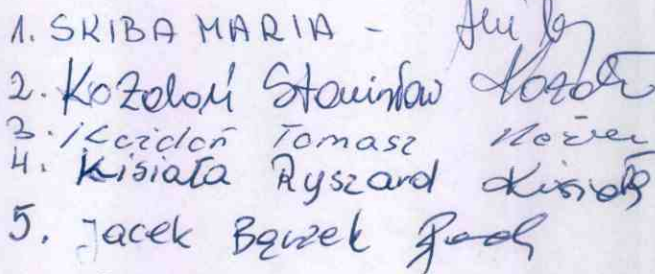 1. SKIBA MARIA -
2. Kozdoń Stanisław
3. Kozdoń Tomasz
4. Kisiała Ryszard Kisiała
5. Jacek Bączek